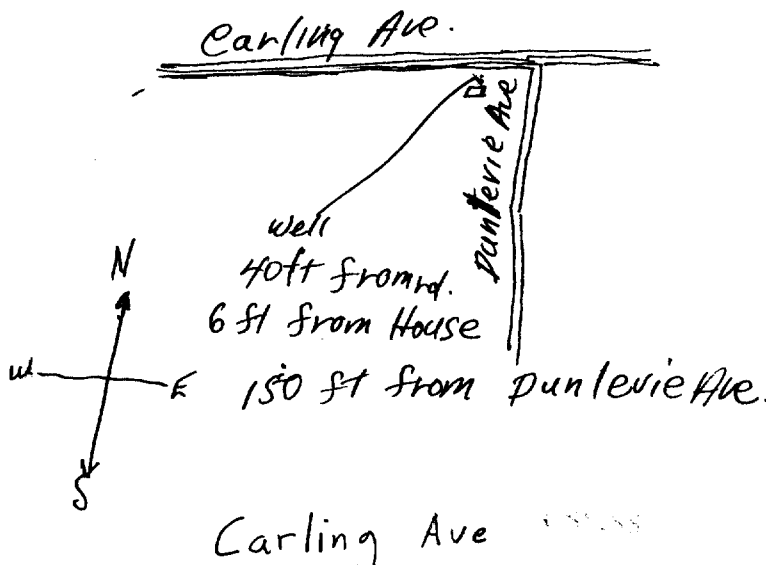 Carling Ave.
Dunlevie Ave
well
40ft from rd.
6 ft from House
150 ft from Dunlevie Ave.
N
W
E
S
Carling Ave